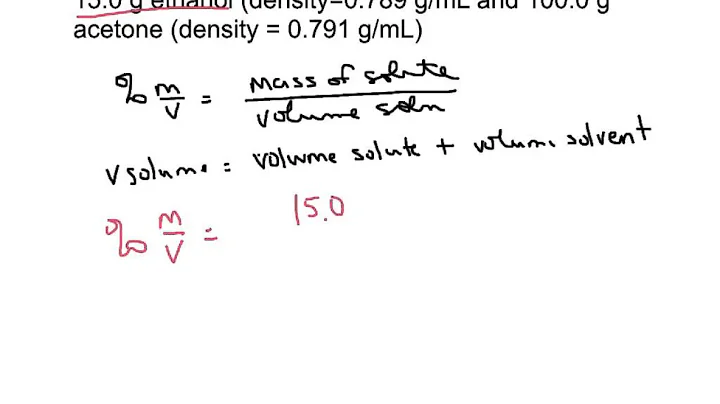 15.0 g ethanol (density=0.789 g/mL and 100.0 g
acetone (density = 0.791 g/mL)
% m/v = mass of solute / volume soln
v solume = volume solute + volume solvent
% m/v = 15.0